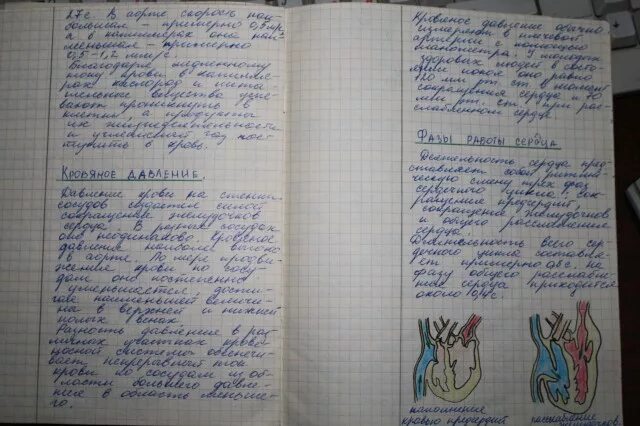 27с. В аорте скорость наи
большая – примерно 0,5 м/с
а в капиллярах она наи
меньшая – примерно
0,5–1,2 мм/с.
Благодаря медленному
току крови в капилля-
рах кислород и пита-
тельные вещества успе
вают проникнуть в
клетки, а продукты
их жизнедеятельности
и углекислый газ пос
тупить в кровь.
КРОВЯНОЕ ДАВЛЕНИЕ.
Давление крови на стенки
сосудов создается силой
сокращения желудочков
сердца. В разных сосудах
оно неодинаково. Кровяное
давление наиболее высоко
в аорте. По мере продви-
жения крови по сосу
дам оно постепенно
уменьшается, дости
гая наименьшей величи
ны в верхней и нижней
полых венах.
Разность давления в раз
личных участках крове
носной системы обеспечи
вает непрерывный ток
крови по сосудам из об
ласти большего давле-
ния в область меньше
го.
Кровяное давление обычно
измеряют в плечевой
артерии с помощью
манометра. У молодых
здоровых людей в состо
янии покоя оно равно
120 мм рт. ст. в момент
сокращения сердца и 70
мм рт. ст. при рас
слабленном сердце.
ФАЗЫ РАБОТЫ СЕРДЦА
Деятельность сердца пред
ставляет собой ритми
ческую смену трех фаз
сердечного цикла: сок
ращения предсердий,
сокращения желудочков
и общего расслабления
сердца.
Длительность всего сер
дечного цикла составля
ет примерно 0,8с. На
фазу общего расслабле
ния сердца приходится
около 0,4с.
наполнение
кровью предсердий
расслабление
желудочков